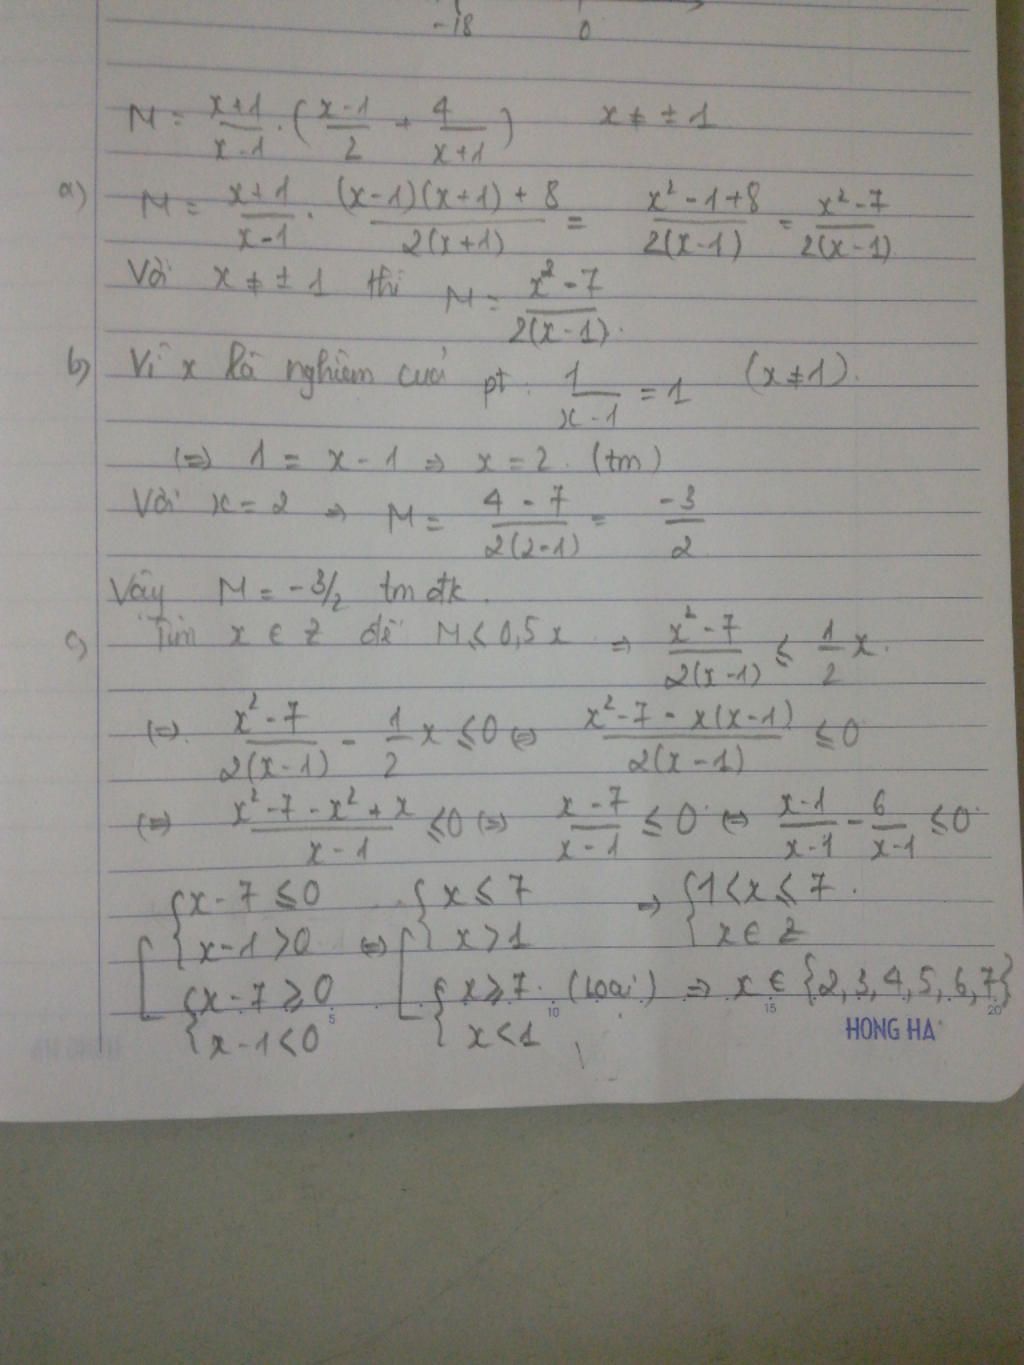 -18 0
M = \frac{x+1}{x-1} . ( \frac{x-1}{2} + \frac{4}{x+1} ) x ≠ ± 1
a) M = \frac{x+1}{x-1} . \frac{(x-1)(x+1) + 8}{2(x+1)} = \frac{x² - 1 + 8}{2(x-1)} = \frac{x² - 7}{2(x-1)}
Với x ≠ ± 1 thì M = \frac{x² - 7}{2(x-1)}.
b) Vì x là nghiệm của pt : \frac{1}{x-1} = 1 (x ≠ 1).
(=) 1 = x - 1 => x = 2. (tm)
Với x = 2 => M = \frac{4 - 7}{2(2-1)} = \frac{-3}{2}
Vậy M = -3/2 tm đk.
c) Tìm x ∈ Z để M ≤ 0,5x => \frac{x² - 7}{2(x-1)} ≤ \frac{1}{2} x.
(=). \frac{x² - 7}{2(x-1)} - \frac{1}{2} x ≤ 0 (=) \frac{x² - 7 - x(x-1)}{2(x-1)} ≤ 0
(=) \frac{x² - 7 - x² + x}{x-1} ≤ 0 (=) \frac{x-7}{x-1} ≤ 0 (=) \frac{x-1}{x-1} - \frac{6}{x-1} ≤ 0
{ x - 7 ≤ 0 { x ≤ 7 => { 1 < x ≤ 7 .
[ { x - 1 > 0 (=) [ { x > 1 { x ∈ Z
{ x - 7 ≥ 0 { x ≥ 7. (loại) => x ∈ {2,3,4,5,6,7}
{ x - 1 < 0 { x < 1
5 10 15 20
HONG HA